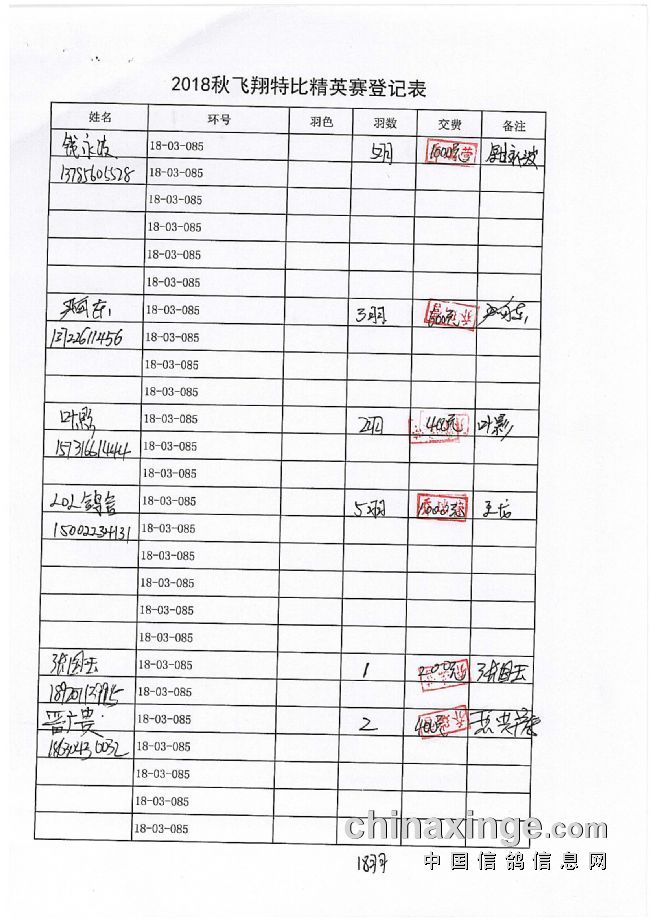 2018秋飞翔特比精英赛登记表
姓名 环号 羽色 羽数 交费 备注
钱永波 18-03-085 5羽 1000元 钱永波
13785605528 18-03-085
18-03-085
18-03-085
18-03-085
18-03-085
18-03-085 3羽 600元
13722611456 18-03-085
18-03-085
18-03-085
叶影 18-03-085 2羽 400元 叶影
15731661444 18-03-085
18-03-085
LDL鸽舍 18-03-085 5羽 1000元
15002234131 18-03-085
18-03-085
18-03-085
18-03-085
18-03-085
张国玉 18-03-085 1 200元 张国玉
18-03-085
18-03-085 2 400元
18-03-085
18-03-085
18-03-085
18-03-085
18羽
chinaxinge.com
中国信鸽信息网